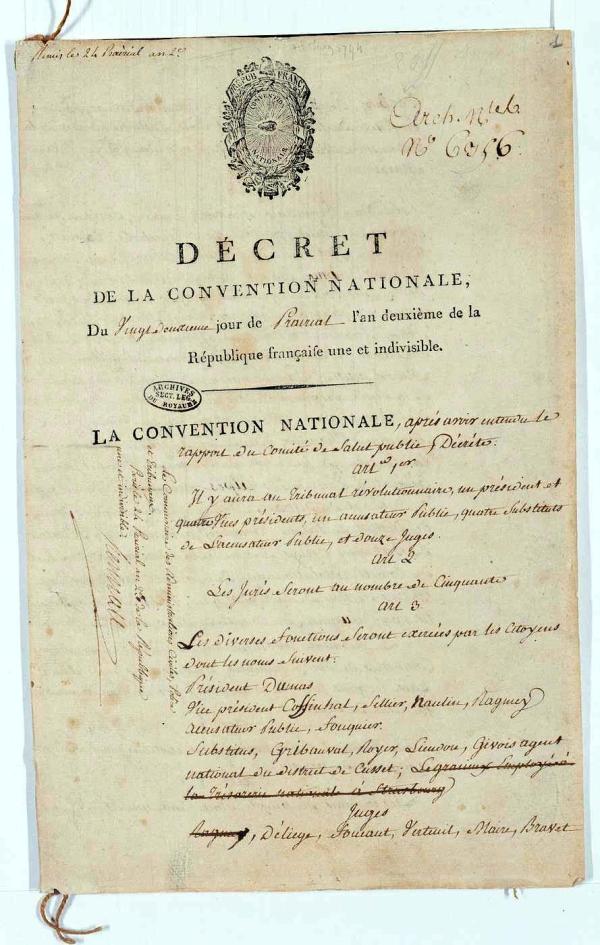 le 24 Prairial an 2e
1
RÉPUB FRANÇ
CONVENTION
NATIONALE
Arch. Nles
No 6056
DÉCRET
DE LA CONVENTION NATIONALE,
Du Vingt deuxieme jour de Prairial l'an deuxième de la
République françaiſe une et indivisible.
ARCHIVES
SECT. LEG.
DU ROYAUME
LA CONVENTION NATIONALE, après avoir entendu le
rapport du Comité de Salut public, Décrète.
art 1er
Il y aura au Tribunal révolutionnaire, un président et
quatre Vices présidents, un accusateur Public, quatre Substituts
de L'accusateur Public, et douze Juges.
art 2
Les Jurés Seront au nombre de Cinquante
art 3
Les diverses fonctions Seront exercées par les Citoyens
dont les noms Suivent.
Président Dumas
Vice président Coffinhal, Sellier, Naulin, Ragmey
accusateur Public, Fouquier.
Substitus, Gribauval, Royer, Liendon, Givois agent
national du district de Cusset; Legrainy Employé à
la Trésorerie nationale à Strasbourg
Juges
Ragmey, Déliege, Foucaut, Verteuil, Maire, Bravet
Le Commissaire des Administrations Civiles, Police
et tribunaux
Paris le 24 Prairial an 2e de la République
une et indivisible.
Herman